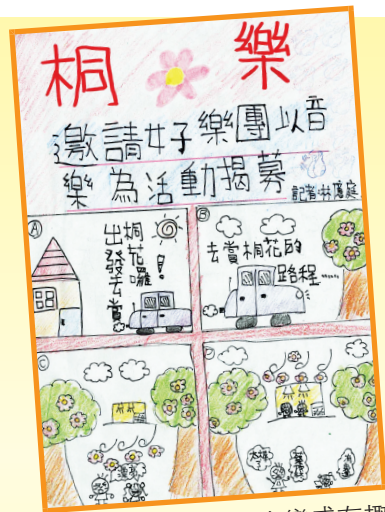 桐樂
邀請女子樂團以音
樂為活動揭募
記者:林
A
出發去賞
桐花囉!
B
去賞桐花的
路程……
C
D
太棒了